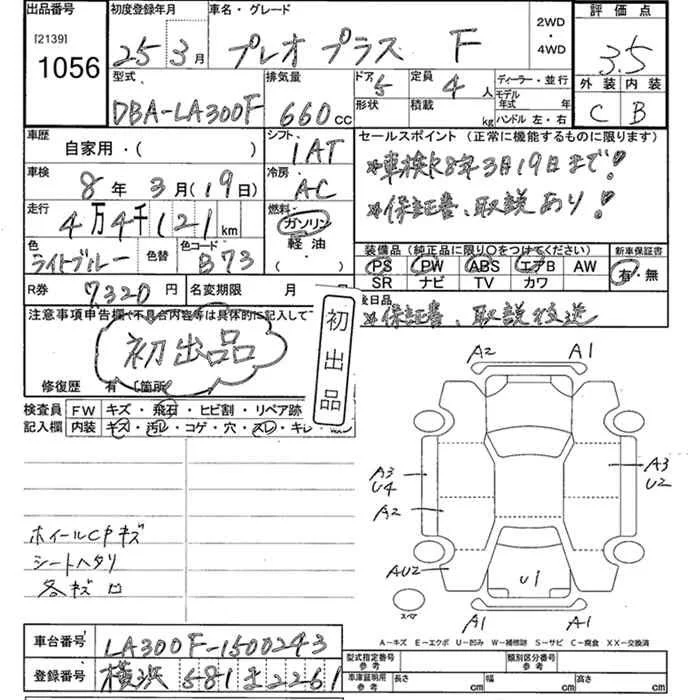 出品番号
[2139]
1056
初度登録年月
25 3月
車名・グレード
プレオ プラス F
2WD
・
4WD
評価点
3.5
外装 内装
C B
型式
DBA-LA300F
排気量
660cc
ドア
5
形状
定員
4人
積載
kg
ディーラー・並行
モデル
年式 年
ハンドル 左・右
車歴
自家用・( )
シフト
1AT
車検
8年 3月(19日)
冷房
AC
走行
4万4千121km
燃料
ガソリン
軽油
( )
色
ライトブルー
色替
色コード
B73
R券
7320円
名変期限 月
セールスポイント (正常に機能するものに限ります)
*車検R8年3月19日まで!
*保証書、取説あり!
装備品(純正品に限り○をつけてください)
PS PW ABS エアB AW
SR ナビ TV カワ
新車保証書
有・無
後日品
*保証書、取説後送
注意事項申告欄(不具合内容等は具体的に記入して
初出品
初出品
修復歴 有 [箇所
検査員
記入欄
FW キズ・飛石・ヒビ割・リペア跡
内装 キズ・汚レ・コゲ・穴・スレ・キレ
ホイールCPキズ
シートヘタリ
各キズ
A2 A1
A3
U4
A2
A3
U2
AU2
U1
スペ
A1 A1
A-キズ E-エクボ U-凹み W-補修跡 S-サビ C-腐食 XX-交換済
車台番号
LA300F-1500243
登録番号
横浜 581 ま 2261
型式指定番号
参考
類別区分番号
参考
車庫証明用
参考
長さ cm 幅 cm 高さ cm